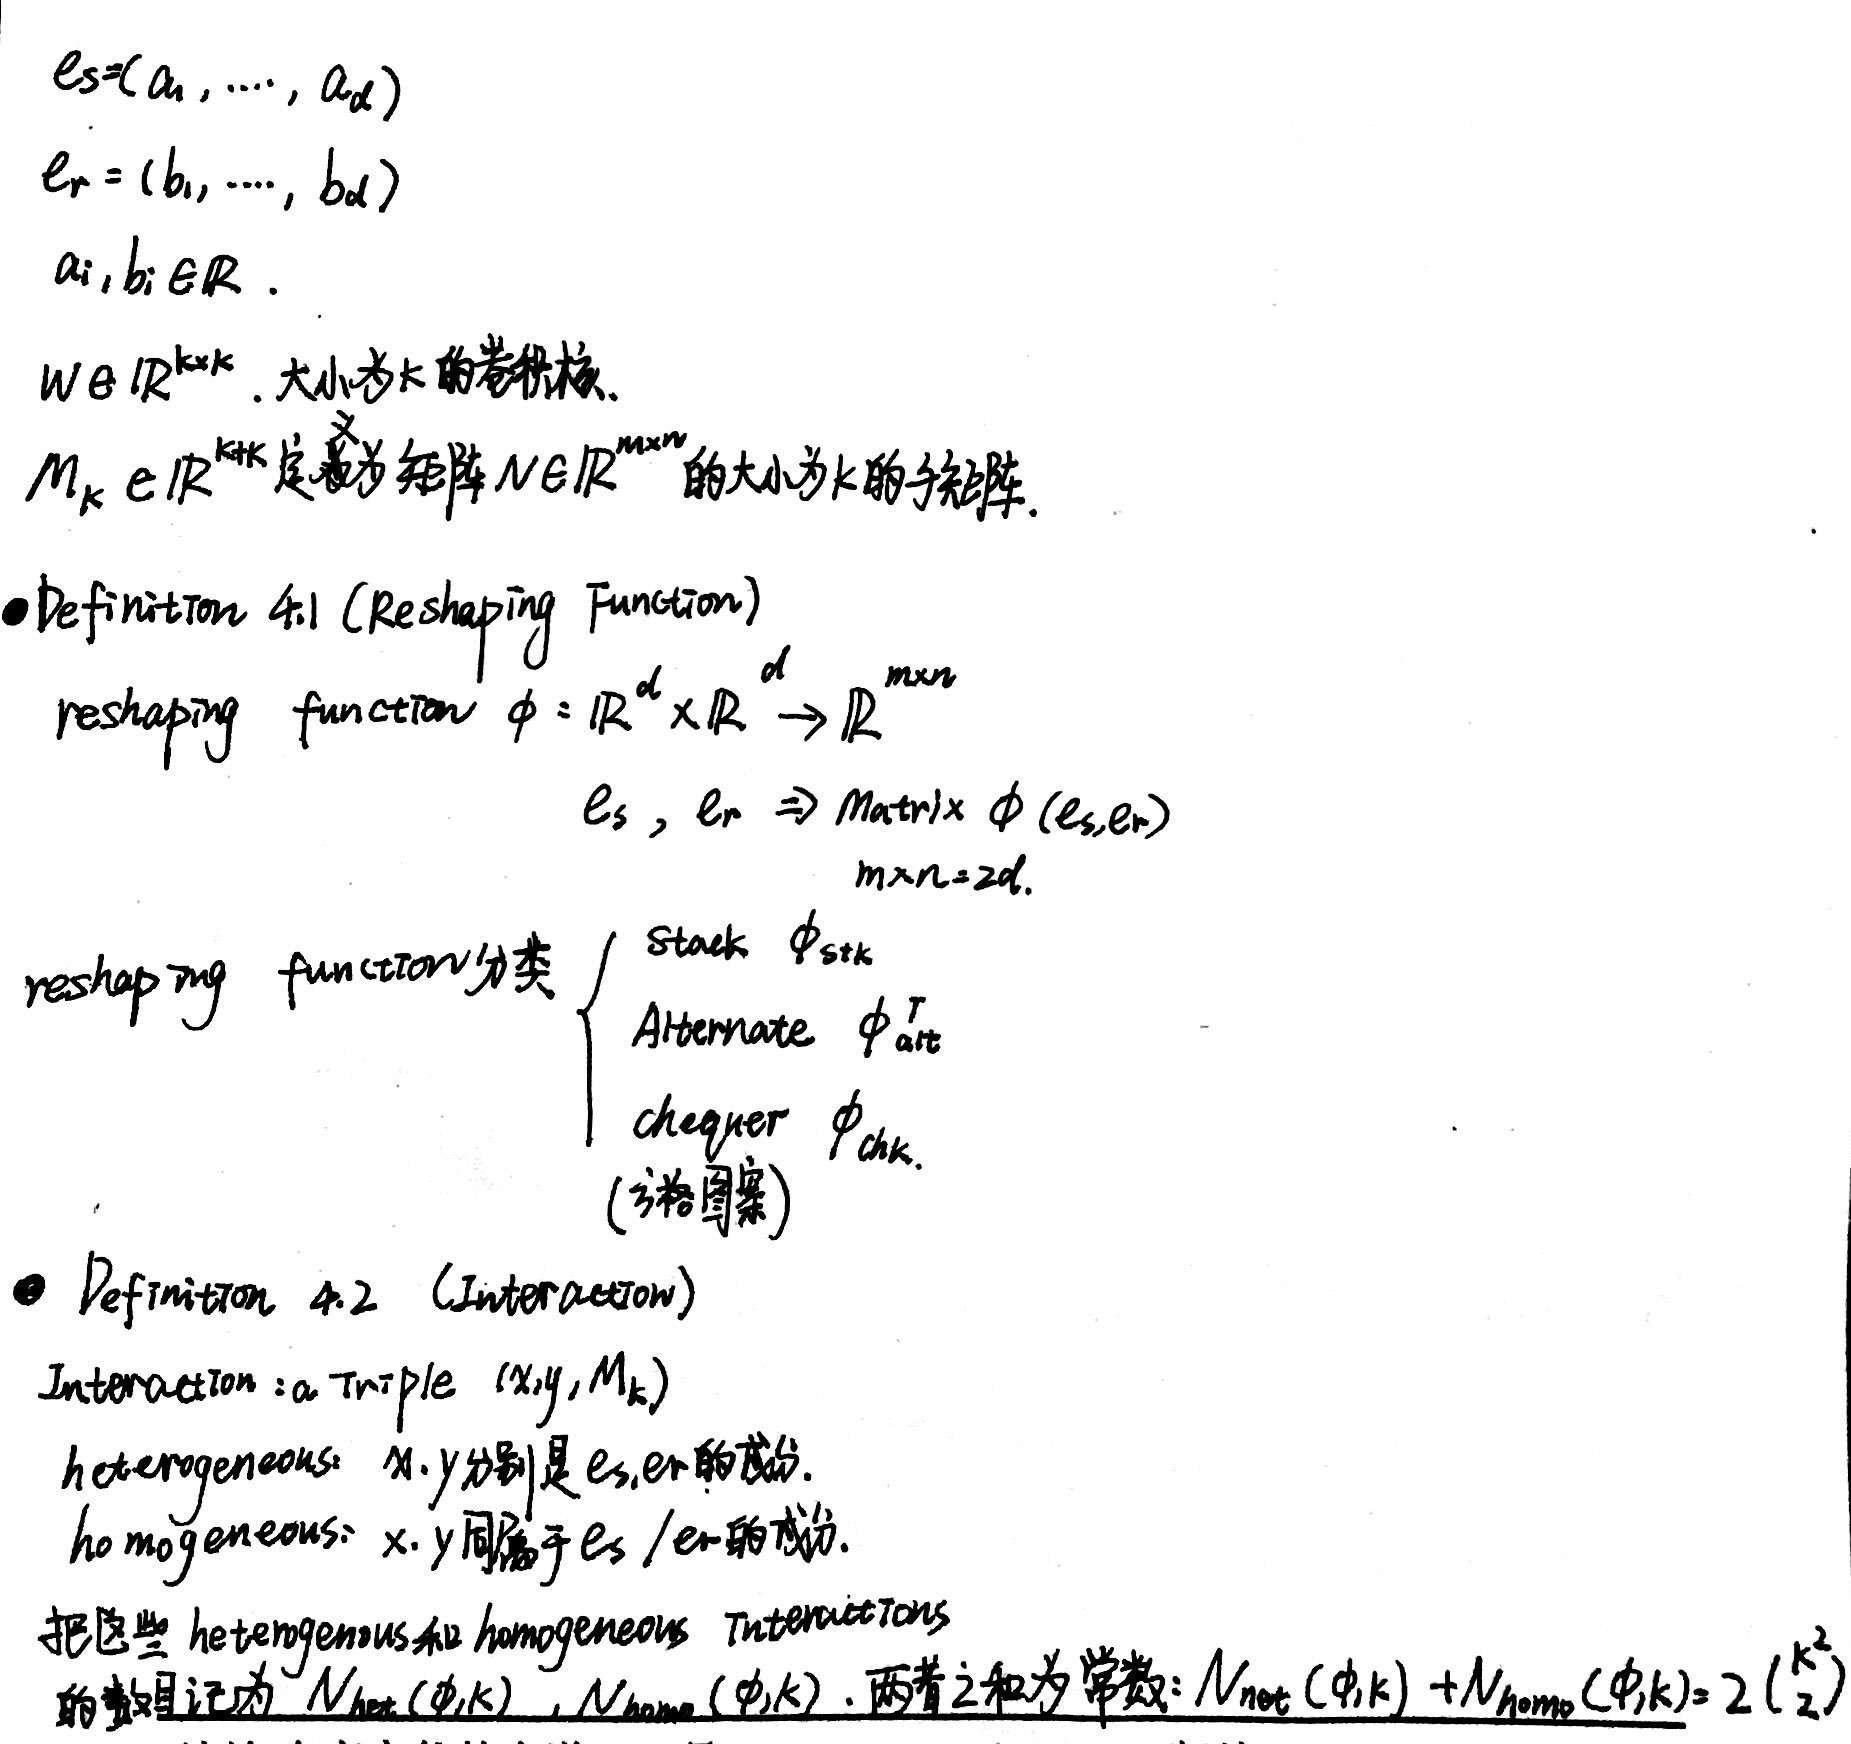 es=(a1, ...., ad)
er = (b1, ...., bd)
ai, bi ∈ ℝ.
W ∈ ℝ^{k×k}. 大小为k的卷积核.
M_k ∈ ℝ^{k×k} 定义为矩阵 N∈ℝ^{m×n} 的大小为k的子矩阵.
● Definition 4.1 (Reshaping Function)
reshaping function φ : ℝ^d × ℝ^d → ℝ^{m×n}
es, er ⇒ Matrix φ (es,er)
m×n=2d.
reshaping function分类 { stack φ_stk
Alternate φ^τ_alt
chequer φ_chk.
(方格图案)
● Definition 4.2 (Interaction)
Interaction : a Triple (x,y, M_k)
heterogeneous: x. y分别是es,er的成份.
homogeneous: x. y同属于es / er的成份.
把这些 heterogenous和homogeneous Interactions
的数目记为 N_het (φ,k) , N_homo (φ,k) . 两者之和为常数: N_het (φ,k) + N_homo (φ,k) = 2 (k² 2)